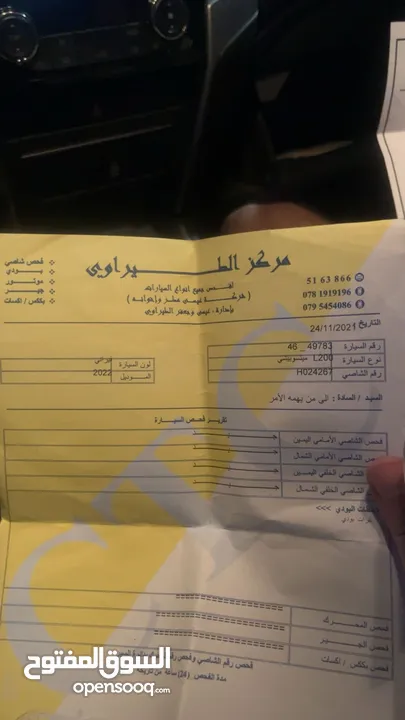 مركز الطيراوي
لفحص جميع انواع السيارات
( شركة عيسى مطر واخوانه )
بإدارة: عيسى وجعفر الطيراوي
❖ فحص شاصي
❖ بودي
❖ موتور
❖ جير
❖ بكلكس / اكسات
51 63 866
078 1919196
079 5454086
التاريخ 24/11/202
رقم السيارة 49783 _ 46
نوع السيارة L200 ميتسوبيشي
رقم الشاصي H024267
لون السيارة
الموديل 2022
السيد / السادة : الى من يهمه الأمر
تقرير فحص السيارة
فحص الشاصي الأمامي اليمين
الشاصي الأمامي الشمال
الشاصي الخلفي اليمين
الشاصي الخلفي الشمال
البودي >>>
بودي
فحص المحرك ==================
فحص الجير ==================
فحص بكلكس / اكسات ==================
فحص رقم الشاصي
مدة الفحص (24) ساعة من تاريخه
CTC
السوق المفتوح
opensooq.com